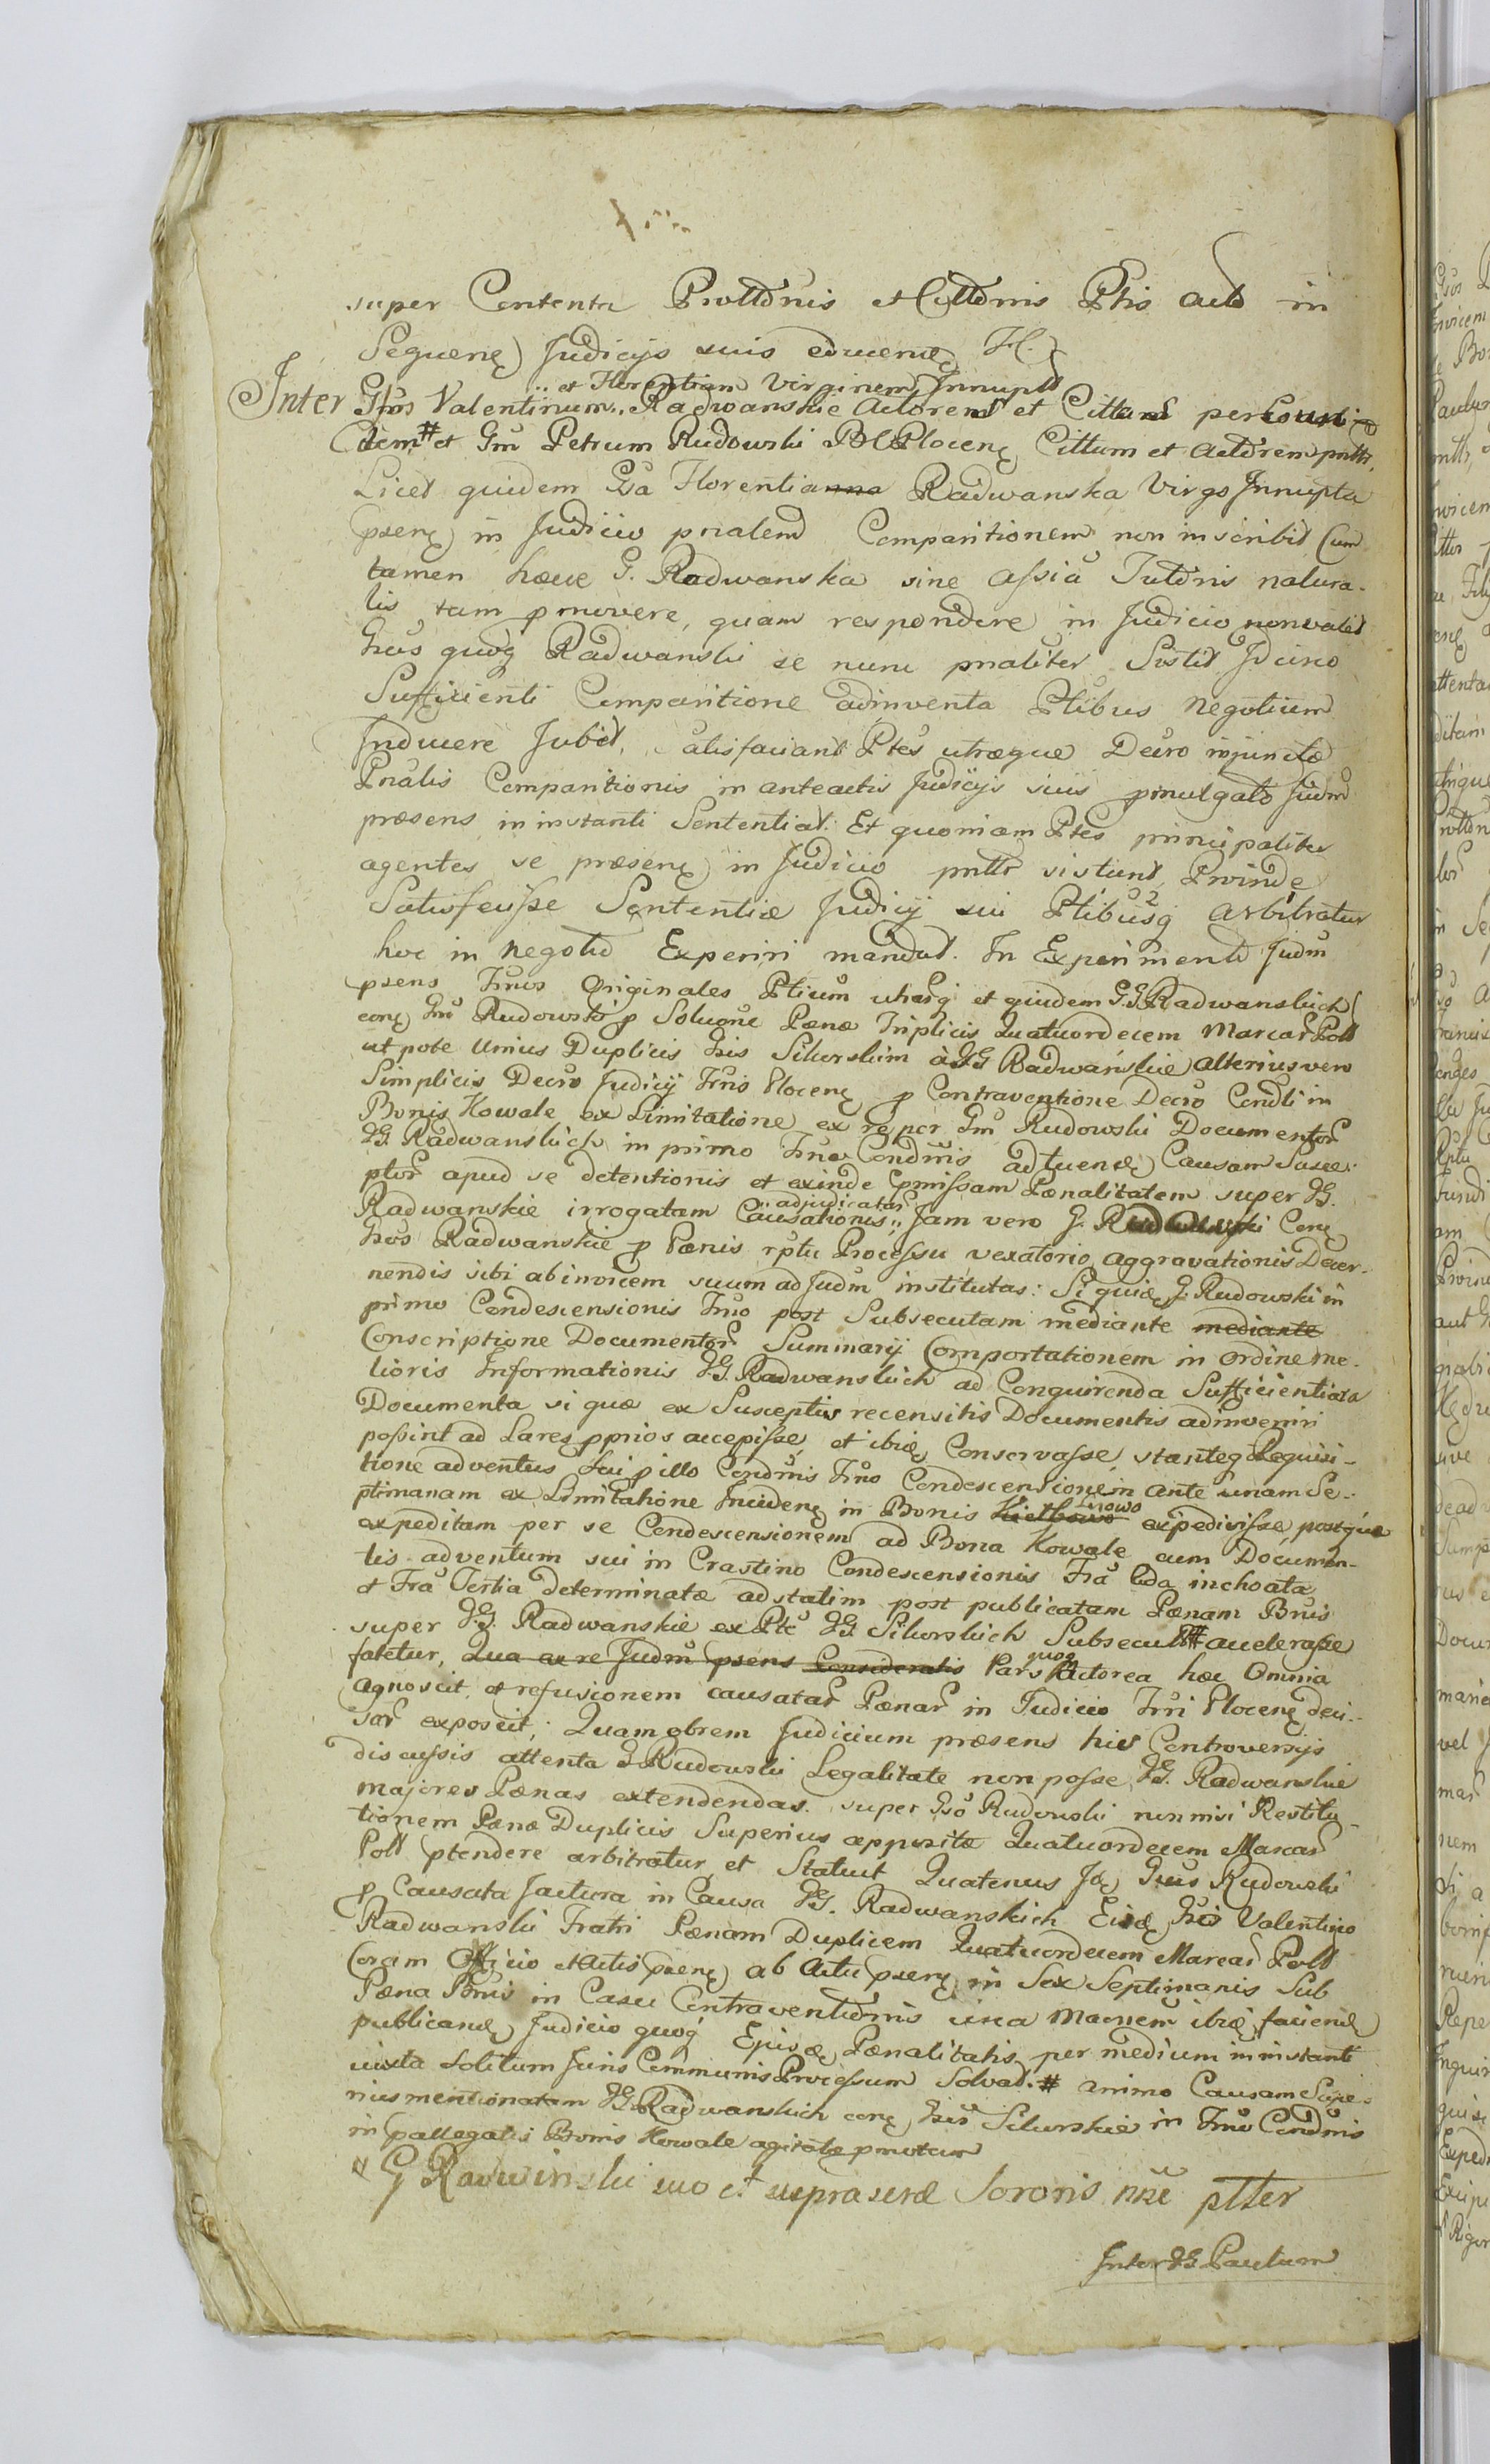 super Contenta Protldnis et Cittdnis Ptis acto in
Sequenꝫ Judicijs suis educenꝫ H.
et Florentiam Virginem Innupt
Inter Gsos Valentinum Radwanskie Actores et Cittas per
Eidem # et Gsu Petrum Rudowski BC Plocenꝫ Cittum et Actorem pnttr.
Licet quidem Gsa Florentia Radwanska Virgo Innupta
psenꝫ in Judicio pnalem Comparitionem non inscribit Cum
tamen haece G. Radwanska sine assia Tutdris natura-
lis tam pmovere, quam respondere in Judicio non valet
Gsus quoqꝫ Radwanski se nunc pnaliter Sistit Idcirco
Sufficienti Comparitione adinventa Ptibus negotium
Inducere Jubet, satisfaciant Ptes utraeque Decro injunctae
Pnalis Comparitionis in anteactis Judicijs suis pmulgato Judm
praesens in instanti Sententiat. Et quoniam Ptes principaliter
agentes se praesenꝫ in Judicio pnttr sistunt, Proinde
Satisfecisse Sententiae Judicij sui Ptibusqꝫ arbitratur
hoc in negotio Experiri mandat. In Experimento Judm
psens Trnos Originales Ptium utrasqꝫ et quidem GG Radwanskich
conꝫ Gsu Rudowski p Solutione Paenae Triplicis Quatuordecem Marcar Poll
utpote Unius Duplicis Gsis Sikorskim à GG Radwańskie alterius vero
Simplicis Decro Judicij Trnis Plocenꝫ p Contraventione Decro Condli in
Bonis Kowale ex Limitatione ex re per Gsu Rudowski Documentor
GG Radwanskich in primo Trno Condnis ad tuendꝫ Causam Susce-
ptor apud se detentionis et exinde Cpmissam Paenalitatem super GG.
adjudicatar
Radwanskie irrogatam Causationis Jam vero G. Rudowski Conꝫ
Gsos Radwanskie p Paenis rptu Processu vexatorio aggravationis Decer-
nendis sibi ab invicem suum ad Judm institutas: Siquidꝫ G. Rudowski in
primo Condescensionis Trno post Subsecutam mediante mediante
Conscriptione Documentor Summarij Comportationem in ordine me-
lioris Informationis GG. Radwanskich ad Conquirenda Sufficientiora
Documenta si quae ex Susceptis recensitis Documentis adinveniri
possint ad Lares pprios accepisse, et ibidꝫ Conservasse, stanteqꝫ Requisi-
tione adventus sui p illo Condnis Trno Condescensionem ante unam Se-
ptimanam ex Limitatione Incidenꝫ in Bonis expedivisse, postque
expeditam per se Condescensionem ad Bona Kowale cum Documen-
tis adventum sui in Crastino Condescensionis Fra 2da inchoata
et Fra Tertia determinatae ad statim post publicatam Paenam Bnis
super GG. Radwanskie ex Pte GG Sikorskich Subsecut # accelerasse
quoqꝫ
fatetur, Qua ex re Judm psens Consideratis Pars Actorea haec Omnia
agnoscit, et refusionem causatar Paenar in Judicio Trni Plocenꝫ deci-
sar exposcit; Quamobrem Judicium praesens his Controversijs
discussis attenta G Rudowski Legalitate non posse GG. Radwanskie
majores Paenas extendendas super Gso Rudowski nonnisi Restitu-
tionem Paenae Duplicis Superius appositae Quatuordecem Marcar
Poll ptendere arbitratur, et Statuit Quatenus Idꝫ Gsus Rudowski
p Causata Jactura in Causa GG. Radwanskich Eidꝫ Gso Valentino
Radwanski Fratri Paenam Duplicem Quatuordecem Marcar Poll
Coram Officio et Actis psenꝫ ab Actu psenꝫ in Sex Septimanis Sub
Paena Bnis in Casu Contraventionis circa Manem ibidꝫ faciendꝫ
publicandꝫ Judicio quoqꝫ Ejusdꝫ Paenalitatis per medium in instanti
iuxta Solitum Juris Communis Processum Solvat. # animo Causam Supe-
rius mentionatam GG Radwanskich conꝫ Gsos Sikorskie in Trno Condnis
in pallegatis Bonis Kowale agitatae pmotam
# G Radwinski suo et supra scrae Sororis nne pttter
Inter GG Paulum